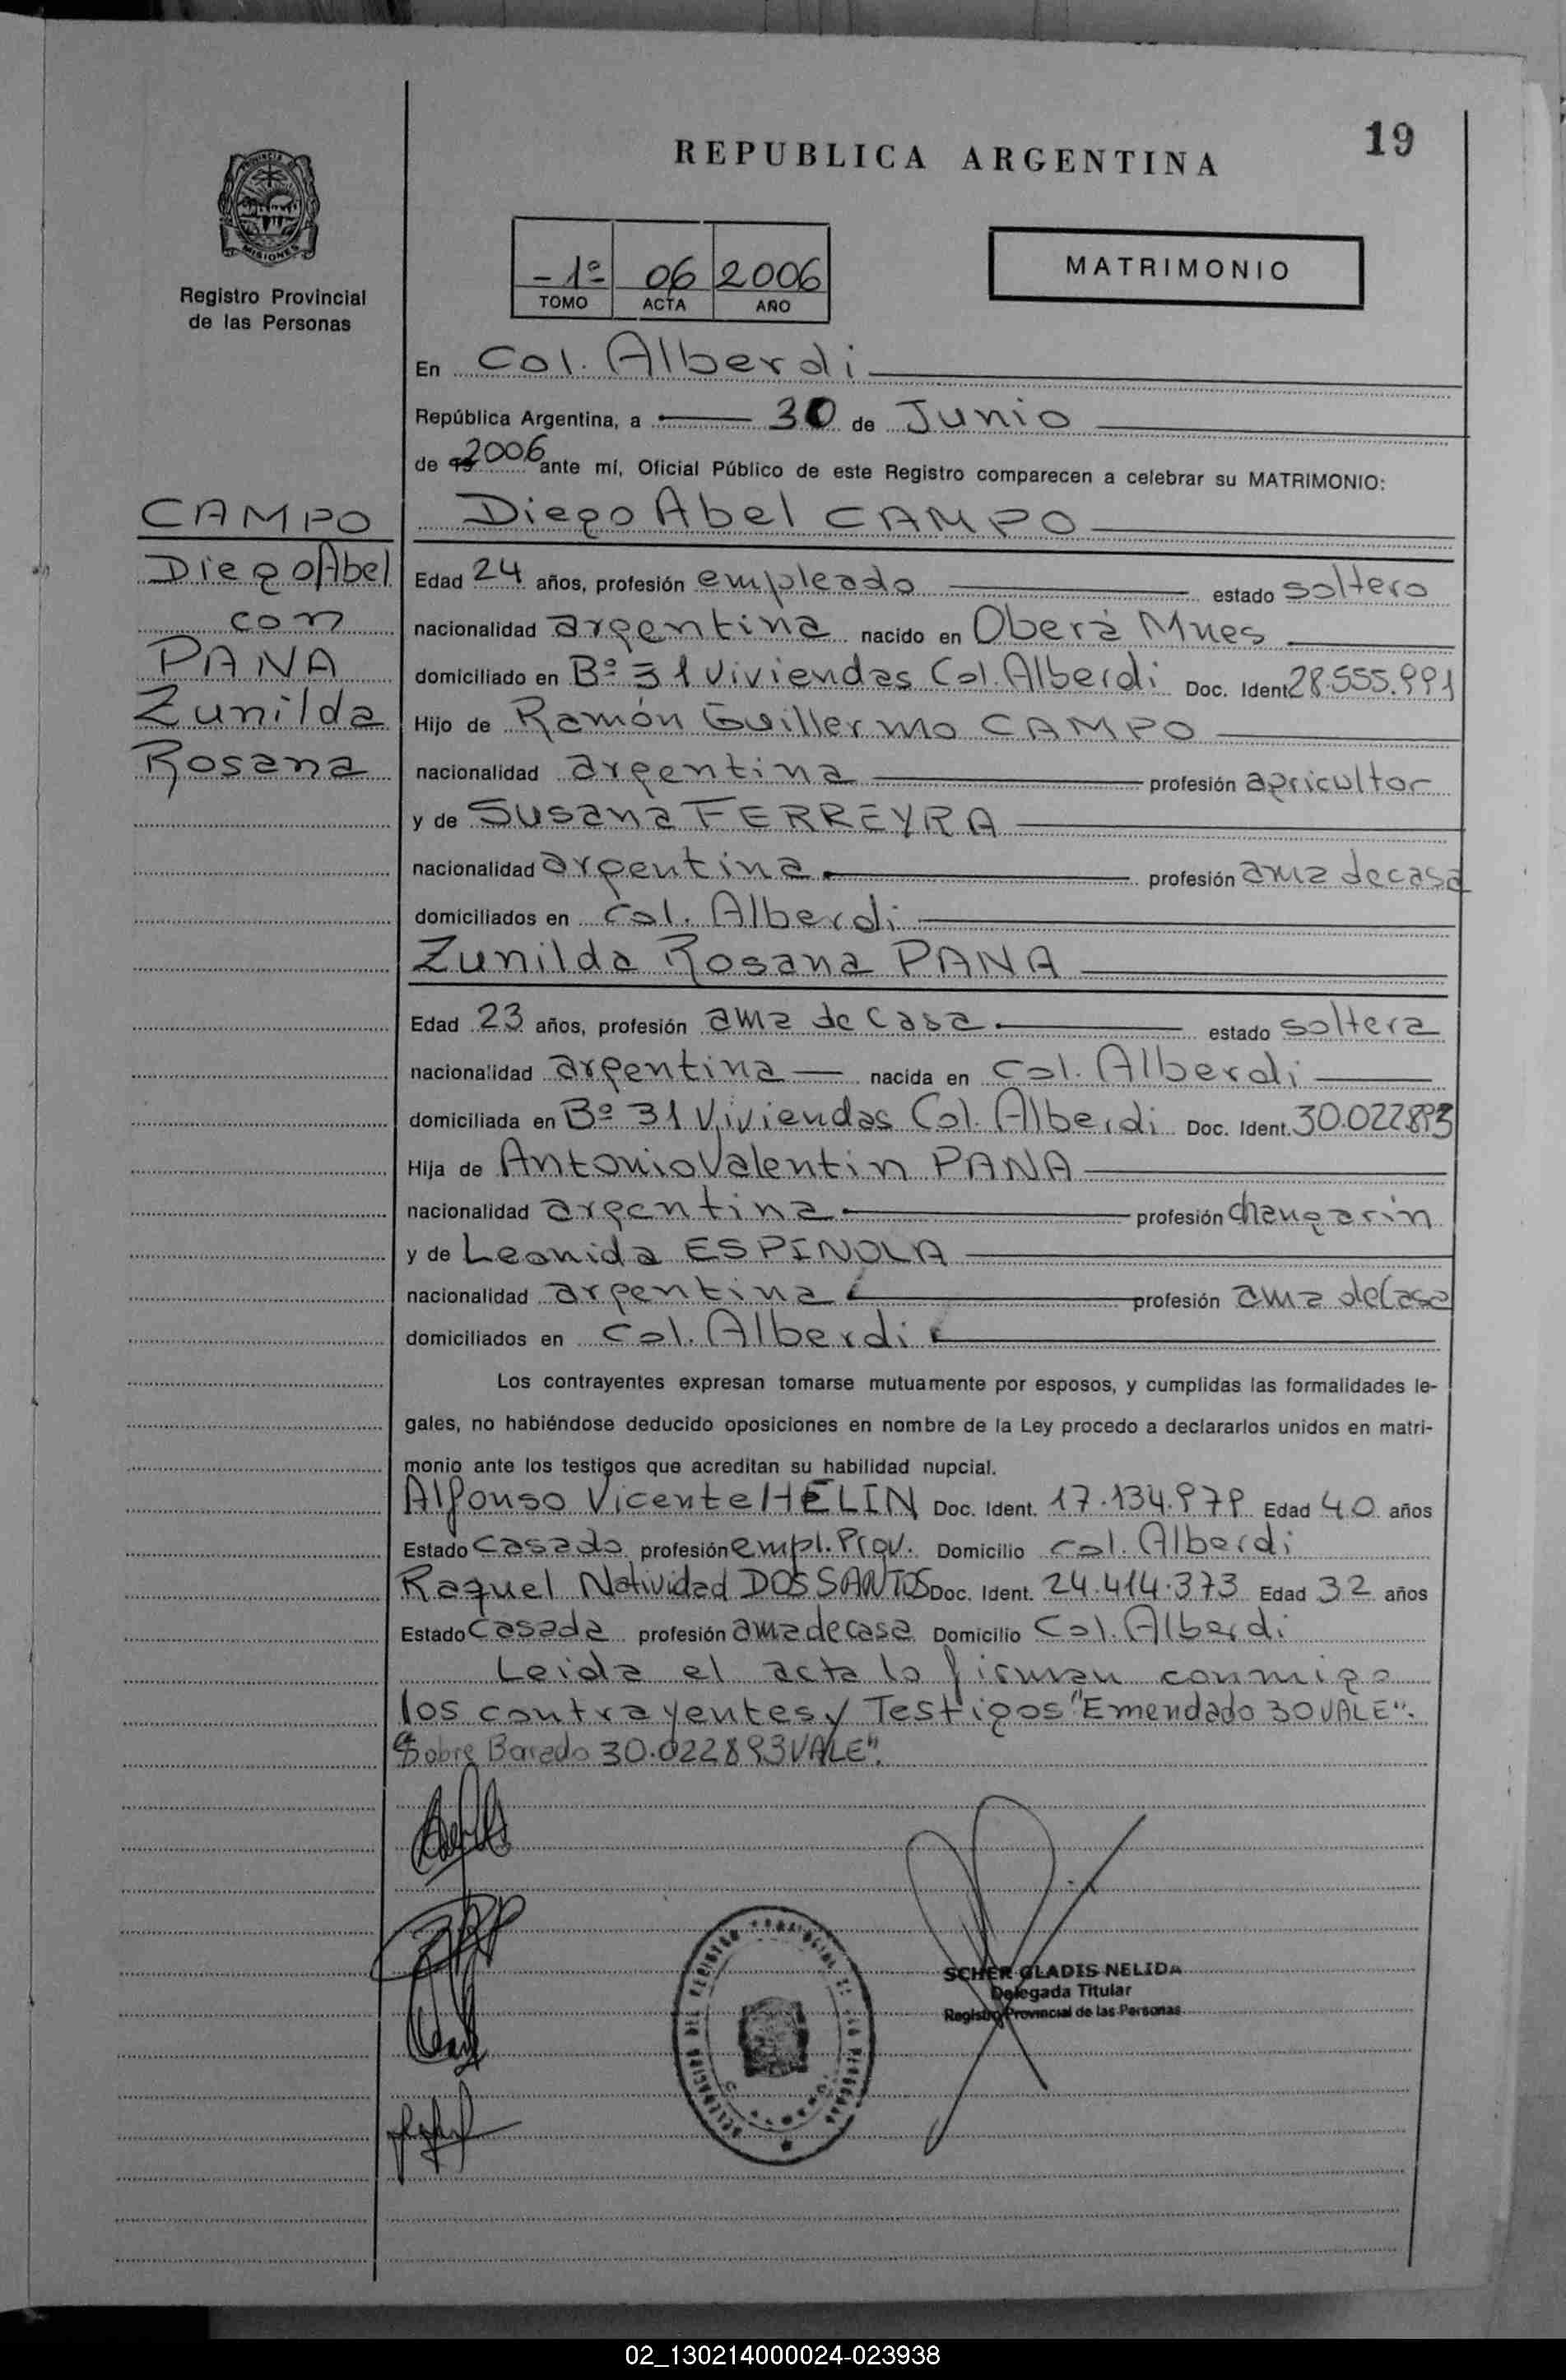 19
REPUBLICA ARGENTINA
MISIONES
Registro Provincial
de las Personas
- 1º 06 2006
TOMO ACTA AÑO
MATRIMONIO
En Col. Alberdi
República Argentina, a 30 de Junio
de 2006 ante mí, Oficial Público de este Registro comparecen a celebrar su MATRIMONIO:
CAMPO
Diego Abel
con
PANA
Zunilda
Rosana
Diego Abel CAMPO
Edad 24 años, profesión empleado estado soltero
nacionalidad argentina nacido en Oberà Mnes
domiciliado en Bº 31 Viviendas Col. Alberdi Doc. Ident 28.555.991
Hijo de Ramón Guillermo CAMPO
nacionalidad argentina profesión agricultor
y de Susana FERREYRA
nacionalidad argentina profesión ama de casa
domiciliados en Col. Alberdi
Zunilda Rosana PANA
Edad 23 años, profesión ama de casa estado soltera
nacionalidad argentina nacida en Col. Alberdi
domiciliada en Bº 31 Viviendas Col. Alberdi Doc. Ident. 30.022893
Hija de Antonio Valentin PANA
nacionalidad argentina profesión changarin
y de Leonida ESPINOLA
nacionalidad argentina profesión ama de Casa
domiciliados en Col. Alberdi
Los contrayentes expresan tomarse mutuamente por esposos, y cumplidas las formalidades le-
gales, no habiéndose deducido oposiciones en nombre de la Ley procedo a declararlos unidos en matri-
monio ante los testigos que acreditan su habilidad nupcial.
Alfonso Vicente HELIN Doc. Ident. 17.134.979 Edad 40 años
Estado Casado profesión empl. Prov. Domicilio Col. Alberdi
Raquel Natividad DOS SANTOS Doc. Ident. 24.414.373 Edad 32 años
Estado Casada profesión ama de casa Domicilio Col. Alberdi
Leida el acta lo firman conmigo
los contrayentes y Testigos "Emendado 30 VALE".
"Sobre Borrado 30.022893 VALE".
SCHER GLADIS NELIDA
Delegada Titular
Registro Provincial de las Personas
02_130214000024-023938